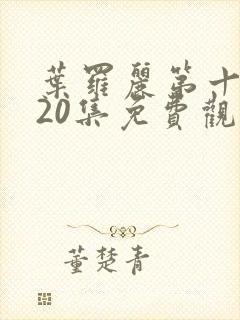 葉羅麗第十
20集免費觀
董楚青